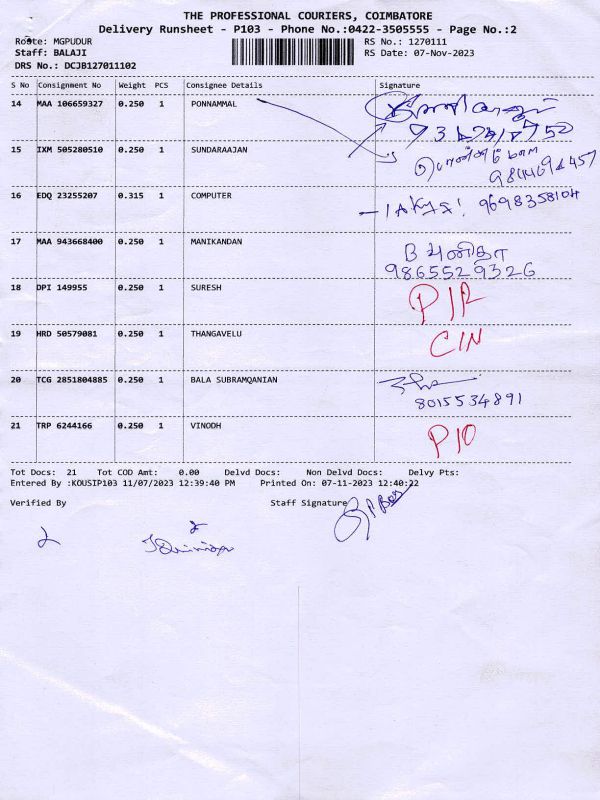 THE PROFESSIONAL COURIERS, COIMBATORE
Delivery Runsheet - P103 - Phone No.:0422-3505555 - Page No.:2
Route: MGPUDUR RS No.: 1270111
Staff: BALAJI RS Date: 07-Nov-2023
DRS No.: DCJB127011102
S No Consignment No Weight PCS Consignee Details Signature
14 MAA 106659327 0.250 1 PONNAMMAL
15 IXM 505280510 0.250 1 SUNDARAAJAN
16 EDQ 23255207 0.315 1 COMPUTER 9698358104
17 MAA 943668400 0.250 1 MANIKANDAN B வனிதா
9865529326
18 DPI 149955 0.250 1 SURESH
19 HRD 50579081 0.250 1 THANGAVELU C/N
20 TCG 2851804885 0.250 1 BALA SUBRAMQANIAN
8015534891
21 TRP 6244166 0.250 1 VINODH P/O
Tot Docs: 21 Tot COD Amt: 0.00 Delvd Docs: Non Delvd Docs: Delvy Pts:
Entered By :KOUSIP103 11/07/2023 12:39:40 PM Printed On: 07-11-2023 12:40:22
Verified By Staff Signature